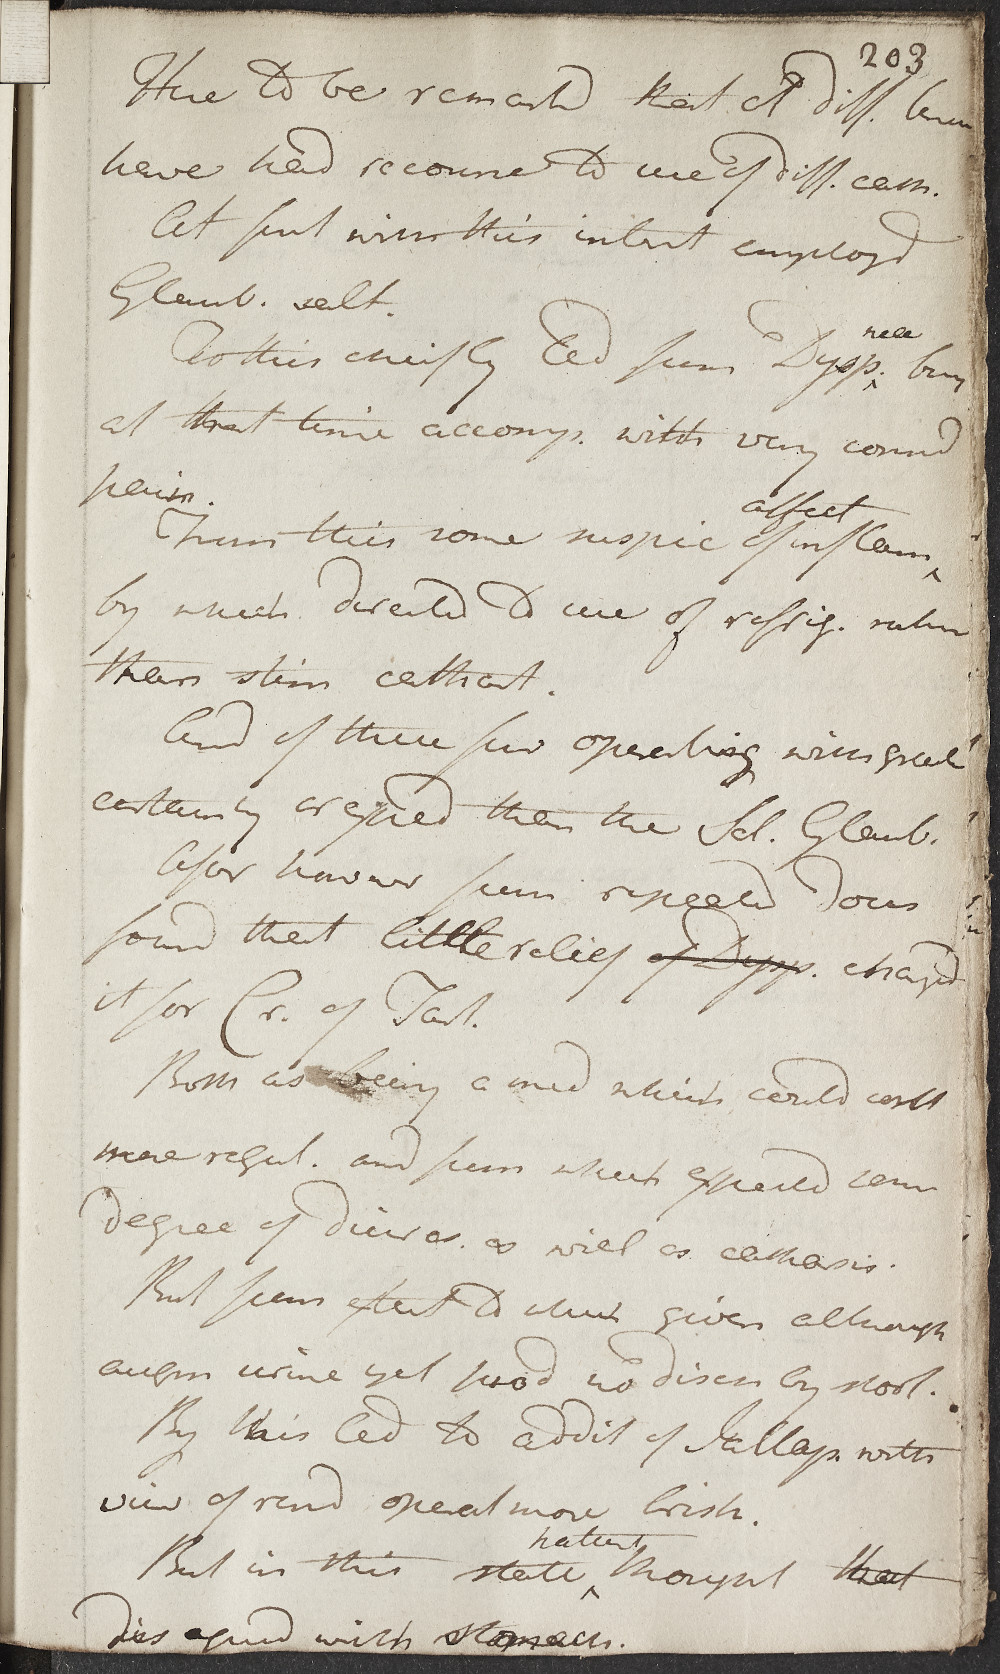 203
Here to be remarkd that at diff. times
have had recourse to use of diff. cath.
At first with this intent employd
Glaub. salt.
To this cheifly led from Dysp. nec
at that time accomp. with very consid
pain.
From this some suspic of inflam affect
by which directed to use of refrig. rather
than stim cathart.
And of these few operating with great
certainty or speed than the Sal. Glaub.
After however from repeated doses
found that little relief of Dysp. changd
it for Cr. of Tart.
Both as being a med which could
more regul. and from which expected some
degree of diures. as well as catharsis.
But from extent to which given although
augm urine yet prod no disch by stool.
By this led to addit of Jallap. with
view of rend operat more brisk.
But in this state patient thought that
disagreed with stomach.